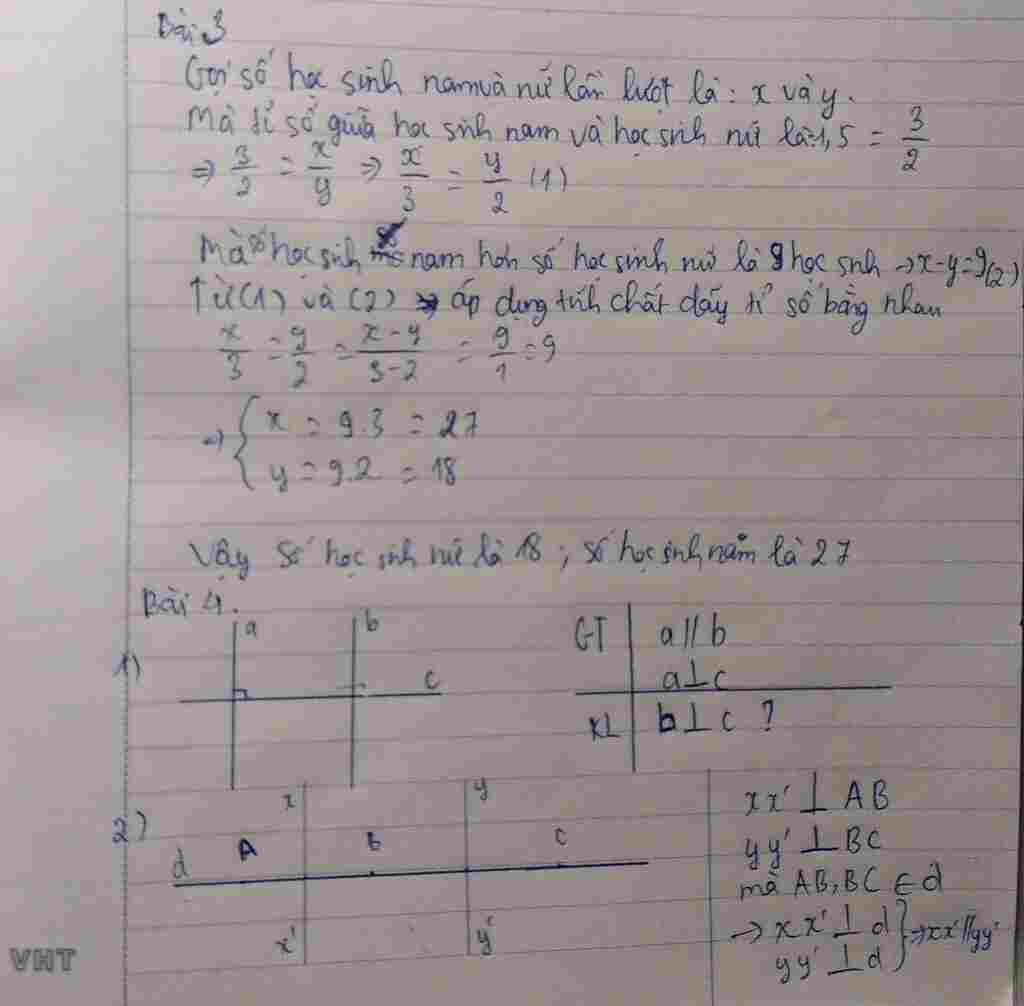 Bài 3
Gọi số học sinh nam và nữ lần lượt là: x và y.
Mà tỉ số giữa học sinh nam và học sinh nữ là 1,5 = 3/2
⇒ 3/2 = x/y ⇒ x/3 = y/2 (1)
Mà số học sinh nam hơn số học sinh nữ là 9 học sinh → x-y=9(2)
Từ (1) và (2) áp dụng tính chất dãy tỉ số bằng nhau
x/3 = y/2 = x-y/3-2 = 9/1 = 9
⇒ { x = 9.3 = 27
y = 9.2 = 18
Vậy số học sinh nữ là 18; số học sinh nam là 27
Bài 4.
1)
a b c
GT a // b
a ⊥ c
KL b ⊥ c ?
2)
x y
d A B C
x' y'
xx' ⊥ AB
yy' ⊥ BC
mà AB, BC ∈ d
→ xx' ⊥ d } ⇒ xx' // yy'
yy' ⊥ d
VHT